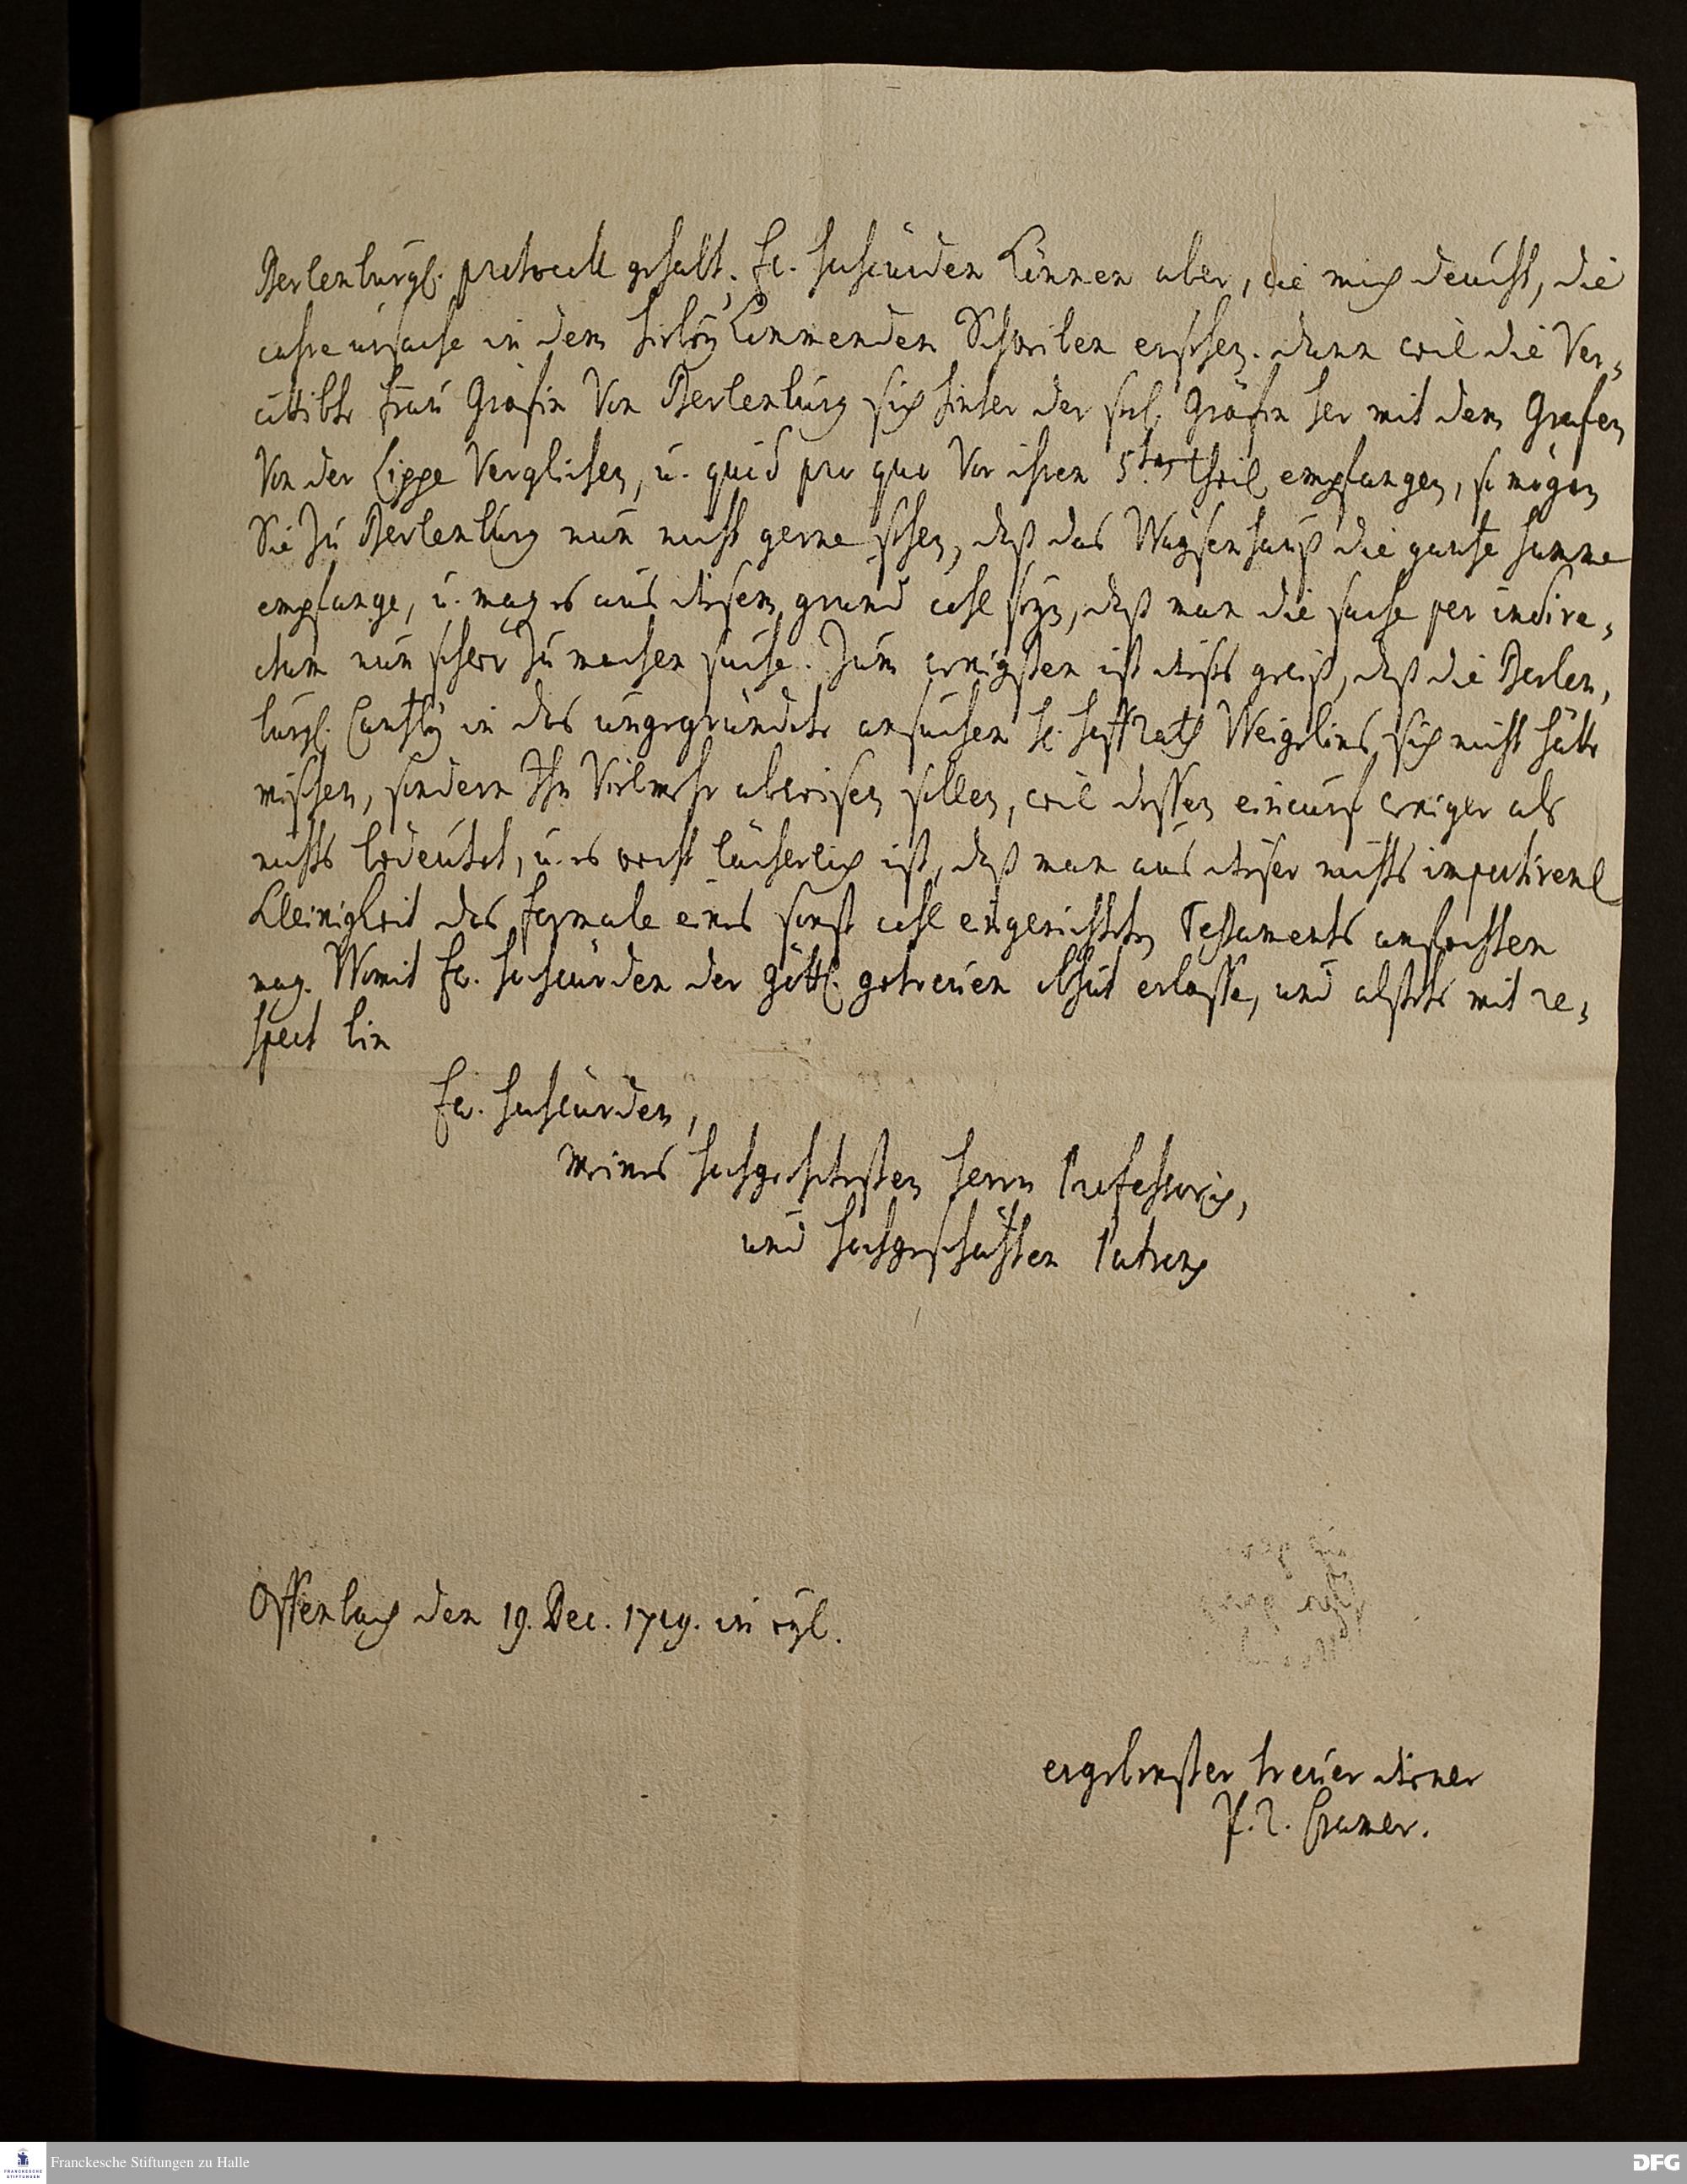 Berlenburgl. protocoll gehabt. Ew. Hochwürden können aber, wie mich deucht, die
wahre ursache in dem hiebey kommenden Schreiben ersehen. dann weil die Ver¬
wittibte Frau Gräfin Von Berlenburg sich hinter der seel. Gräfin her mit dem Grafen
Von der Lippe Verglichen, u. quid pro quo Vor ihren 5ten theil empfangen, so mögen
Sie Zu Berlenburg nun nicht gerne sehen, daß das Waysenhauß die gantze summe
empfange, u. mag es aus diesem grund wohl seyn, daß man die sache per indire¬
ctum nun schwer Zu machen suche. Zum wenigsten ist dieses gewiß, daß die Berlen¬
burgl. Cantzley in das ungegründete ansuchen H. Hoffrath Weigelins sich nicht hätte
mischen, sondern Ihn Vielmehr abweisen sollen, weil dessen einwurf weniger als
nichts bedeutet, u. es recht lächerlich ist, daß man aus dieser nichts importirenden
Kleinigkeit das formale eines sonst wohl eingerichteten Testaments anfechten
mag. Womit Ew. Hochwürden der göttl. getreuen obhut erlasse, und allstets mit re¬
spect bin
Ew. Hochwürden,
Meines hochgeehrtesten Herrn Professoris,
und hochgeschätzten Patrons
Offenbach den 19. Dec. 1719. in eyl.
ergebenster treuer diener
Cramer.
Franckesche Stiftungen zu Halle
FRANCKESCHE STIFTUNGEN
DFG